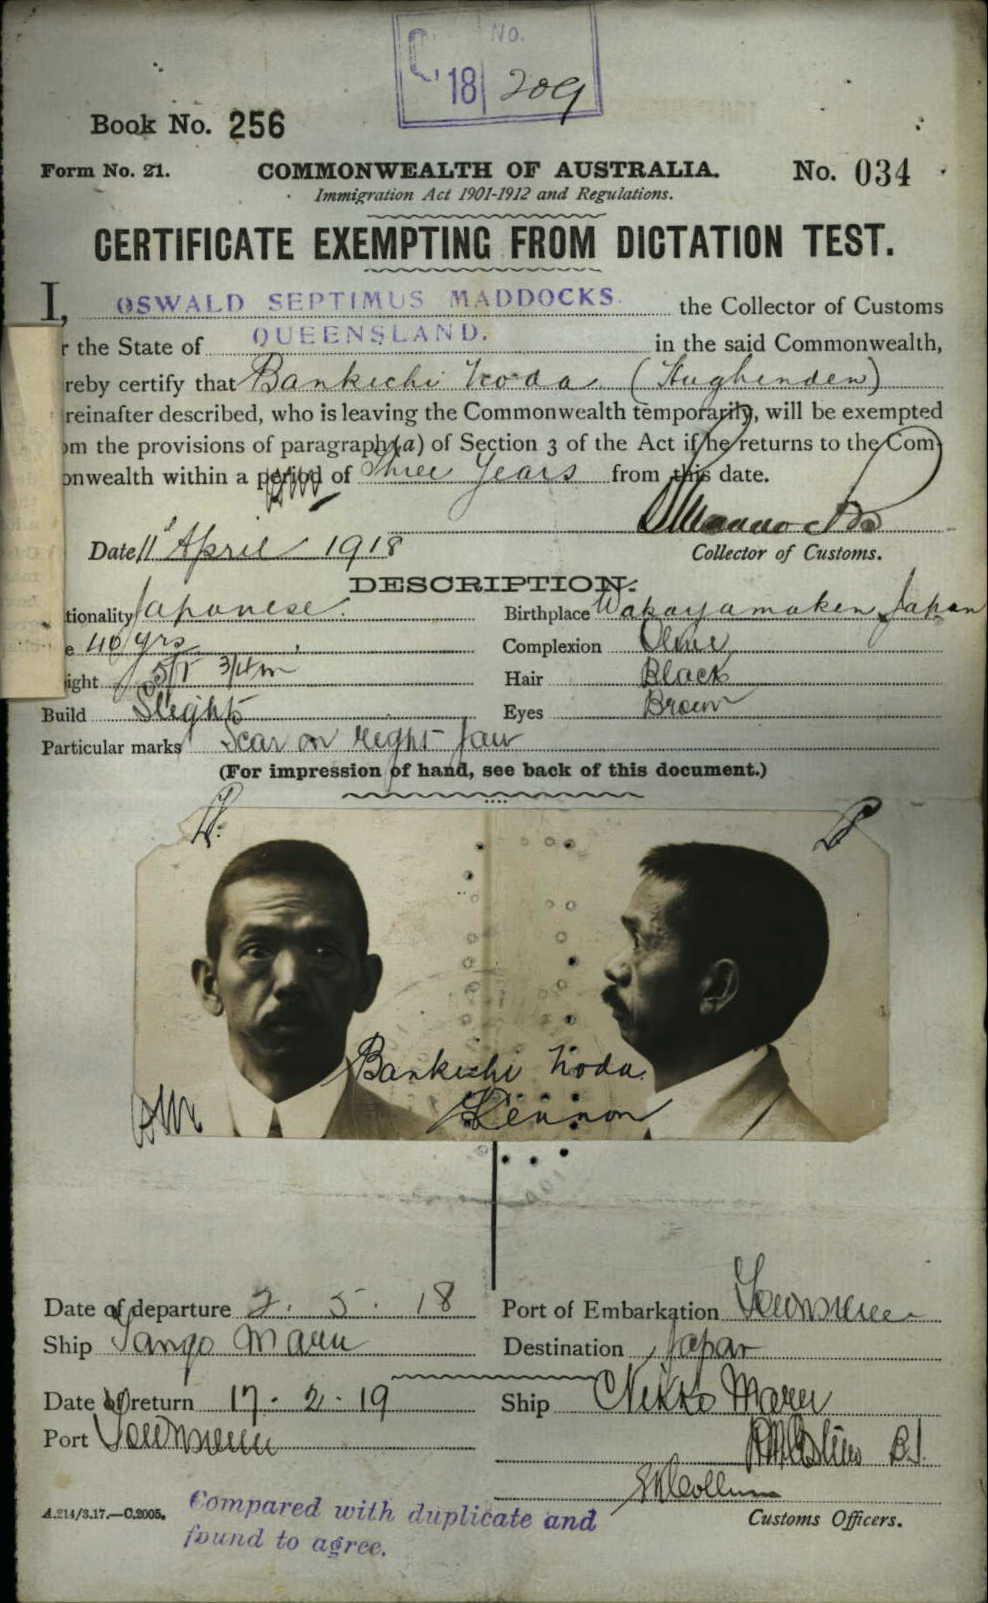 C. No.
18/209
Book No. 256
Form No. 21. COMMONWEALTH OF AUSTRALIA. No. 034
Immigration Act 1901-1912 and Regulations.
CERTIFICATE EXEMPTING FROM DICTATION TEST.
I, OSWALD SEPTIMUS MADDOCKS. the Collector of Customs
r the State of QUEENSLAND. in the said Commonwealth,
reby certify that Bankichi Koda (Hughenden)
reinafter described, who is leaving the Commonwealth temporarily, will be exempted
om the provisions of paragraph (a) of Section 3 of the Act if he returns to the Com-
onwealth within a period of Three Years from this date.
Date 11 April 1918 Collector of Customs.
DESCRIPTION.
tionality Japanese. Birthplace Wakayamaken Japan
e 40 yrs Complexion Olive
ight 5ft 3/4 in Hair Black
Build Slight Eyes Brown
Particular marks Scar on right jaw
(For impression of hand, see back of this document.)
Bankichi Koda
Lennon
Date of departure 2. 5. 18 Port of Embarkation Townsville
Ship Tango Maru Destination Japan
Date of return 17. 2. 19 Ship Nikko Maru
Port Townsville
A.214/3.17.—C.2005. Customs Officers.
Compared with duplicate and
found to agree.